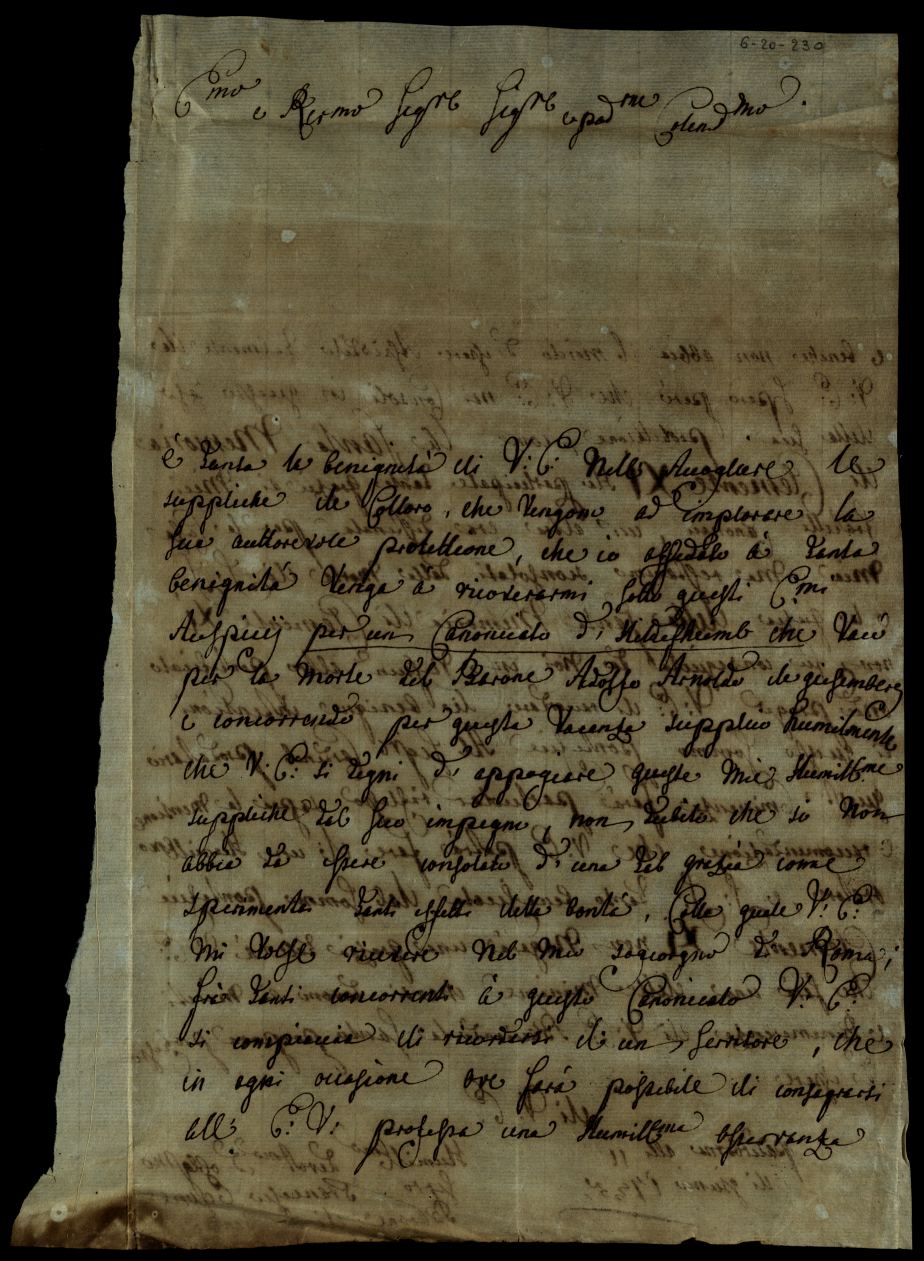 6-20-230
E^mo e R^ermo Sig^re Sig^re e pad^rne Colend^mo.
È tanta la benignità di V: E: nell' Accogliere le
suppliche de Colloro, che Vengono ad implorare la
sua auttorevole protettione, che io affidato à tanta
benignità Vengo à ricoverarmi sotto questi E^mi
Auspicij per un Canonicato d' Hildesheimb che Vacò
per la morte del Barone Adolfo Arnoldo de
e concorrendo per questa Vacanza supplico humilmente
che V: E: si degni d' appogiare queste mie Humill^me
suppliche del suo impegno, non dubito che io Non
abbia da essere consolato d' una tal grazia come
sperimentai tanti effetti della bontà, Colla quale V: E:
mi Volse ricevere nel mio sogiorgno di Roma;
frà tanti concorrenti à questo Canonicato V: E:
si compiaccia di ricordarsi d' un servitore, che
in ogni occasione ove sarà possibile di consagrarsi
all' E: V: professa una Humill^ma osservanza